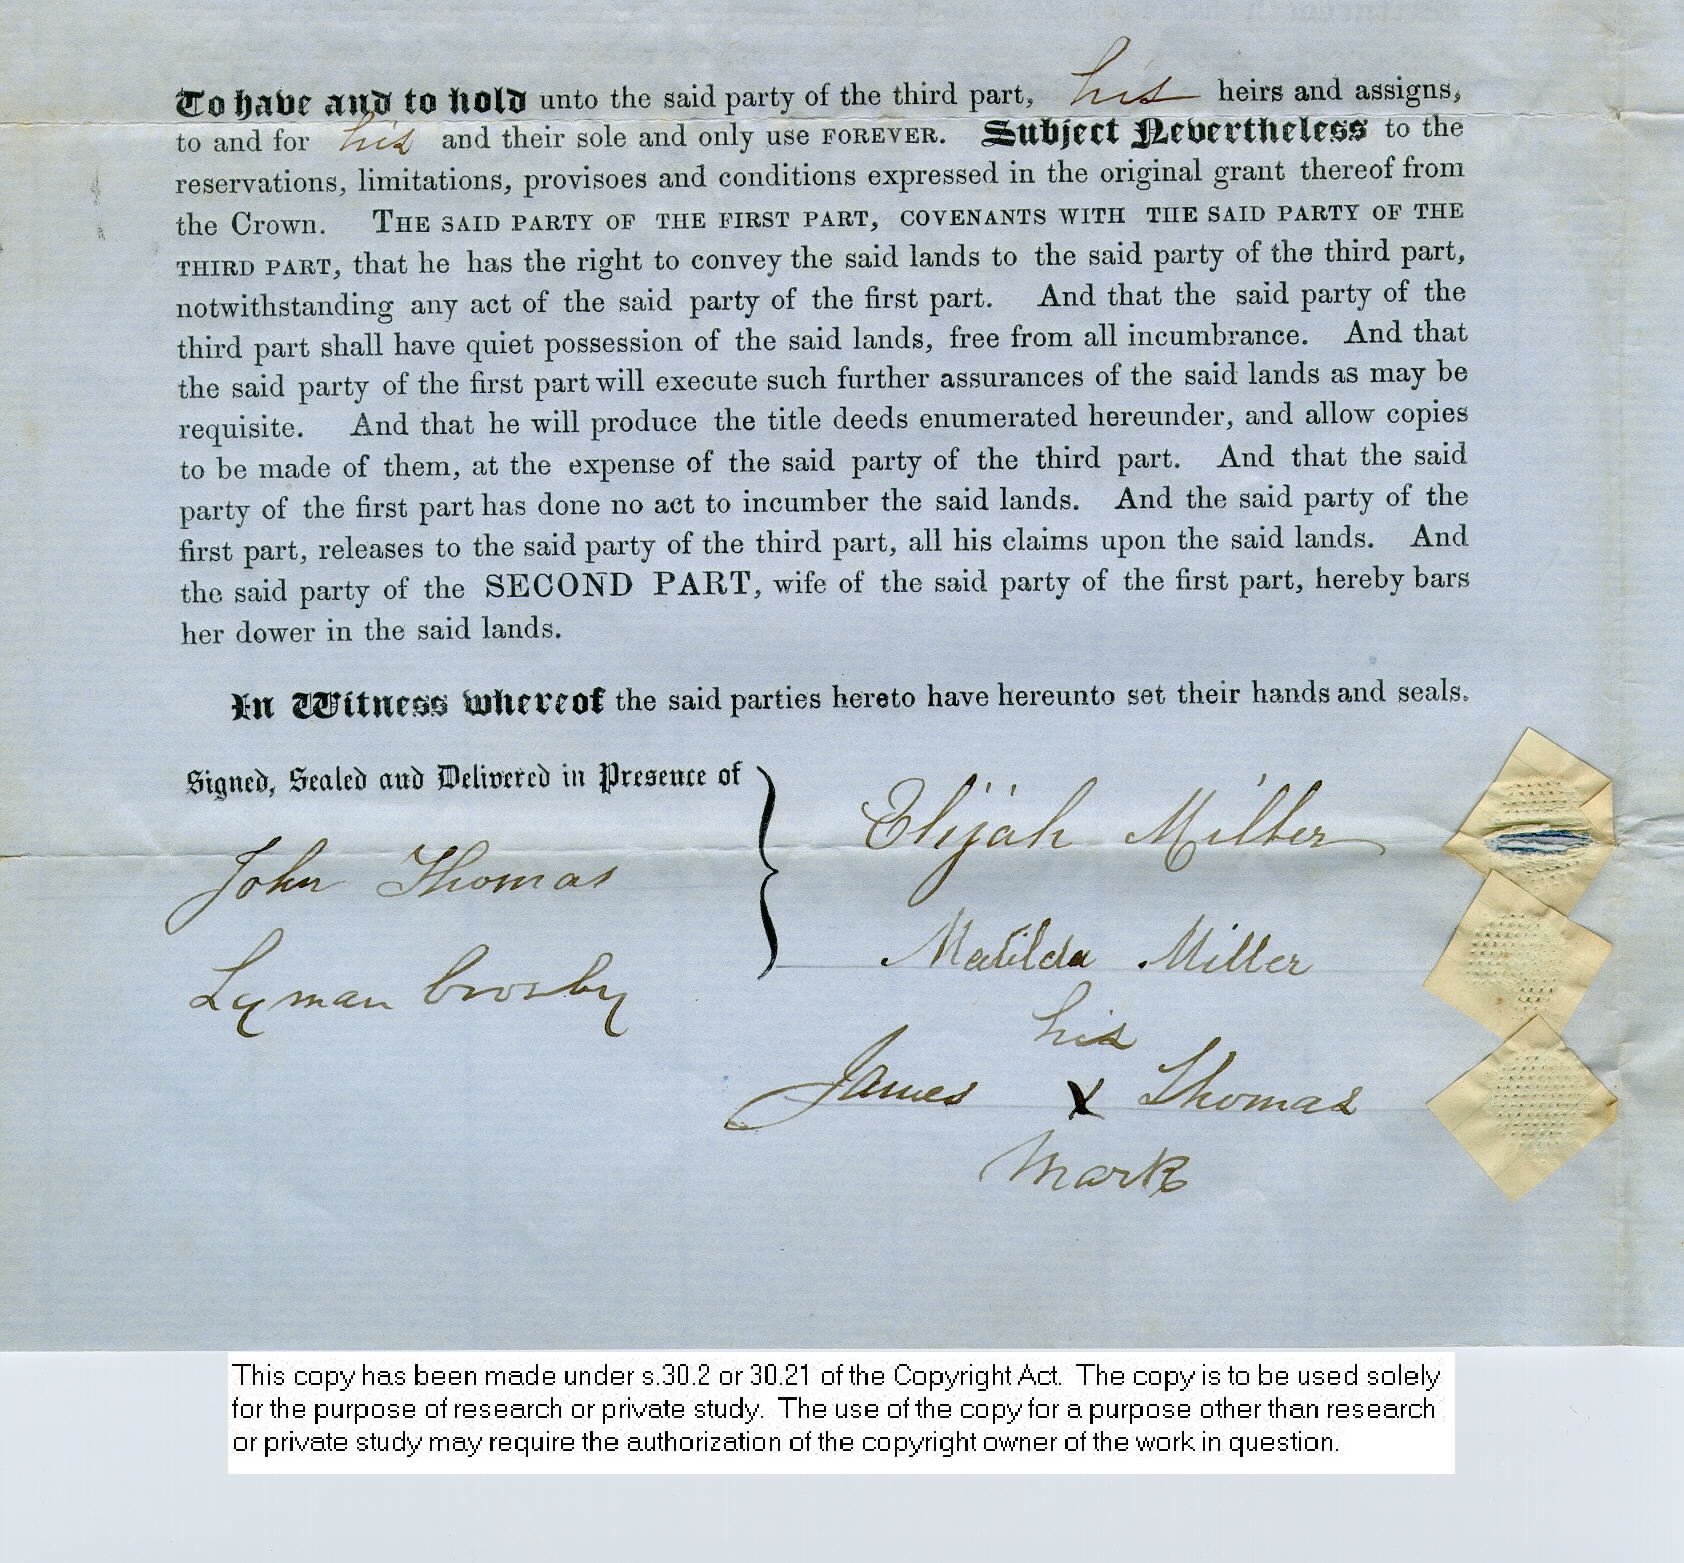 To have and to hold unto the said party of the third part, his heirs and assigns,
to and for his and their sole and only use FOREVER. Subject Nevertheless to the
reservations, limitations, provisoes and conditions expressed in the original grant thereof from
the Crown. THE SAID PARTY OF THE FIRST PART, COVENANTS WITH THE SAID PARTY OF THE
THIRD PART, that he has the right to convey the said lands to the said party of the third part,
notwithstanding any act of the said party of the first part. And that the said party of the
third part shall have quiet possession of the said lands, free from all incumbrance. And that
the said party of the first part will execute such further assurances of the said lands as may be
requisite. And that he will produce the title deeds enumerated hereunder, and allow copies
to be made of them, at the expense of the said party of the third part. And that the said
party of the first part has done no act to incumber the said lands. And the said party of the
first part, releases to the said party of the third part, all his claims upon the said lands. And
the said party of the SECOND PART, wife of the said party of the first part, hereby bars
her dower in the said lands.
In Witness whereof the said parties hereto have hereunto set their hands and seals.
Signed, Sealed and Delivered in Presence of
John Thomas
Lyman Crosby
Elijah Miller
Matilda Miller
his
James X Thomas
Mark
This copy has been made under s.30.2 or 30.21 of the Copyright Act. The copy is to be used solely
for the purpose of research or private study. The use of the copy for a purpose other than research
or private study may require the authorization of the copyright owner of the work in question.